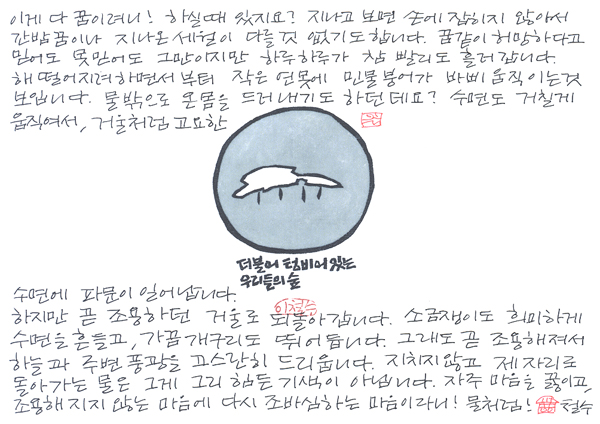 이게 다 꿈이려니! 하실때 있지요? 지나고 보면 손에 잡히지 않아서
간밤 꿈이나 지나온 세월이 다를것 없기도합니다. 꿈같이 허망하다고
믿어도 못믿어도 그만이지만 하루하루가 참 빨리도 흘러갑니다.
해 떨어지려하면서부터 작은 연못에 민물붕어가 바삐 움직이는것
보입니다. 물밖으로 온몸을 드러내기도 하던데요? 수면도 거칠게
움직여서, 거울처럼 고요한
더불어 텅비어있는
우리들의 숲
수면에 파문이 일어납니다.
하지만 곧 조용하던 거울로 되돌아갑니다. 소금쟁이도 희미하게
수면을 흔들고, 가끔 개구리도 뛰어듭니다. 그래도 곧 조용해져서
하늘과 주변 풍광을 고스란히 드리웁니다. 지치지않고 제자리로
돌아가는 물은 그게 그리 힘든 기색이 아닙니다. 자주 마음을 끓이고,
조용해지지 않는 마음에 다시 조바심하는 마음이라니! 물처럼! 철수